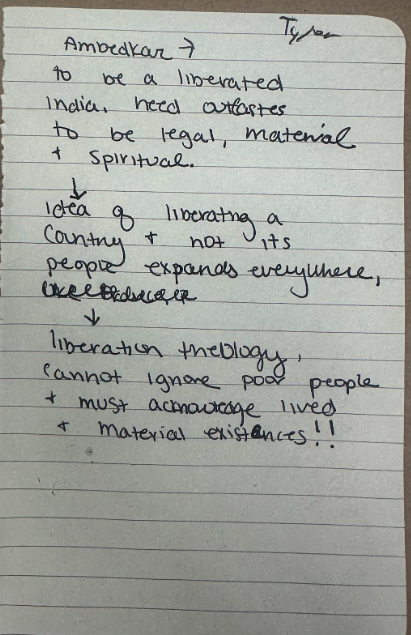 Ambedkar →
to be a liberated
India, need outcastes
to be legal, material
+ spiritual.
↓
idea of liberating a
country + not its
people expands everywhere,
↓
liberation theology,
cannot ignore poor people
+ must acknowledge lived
+ material existences!!